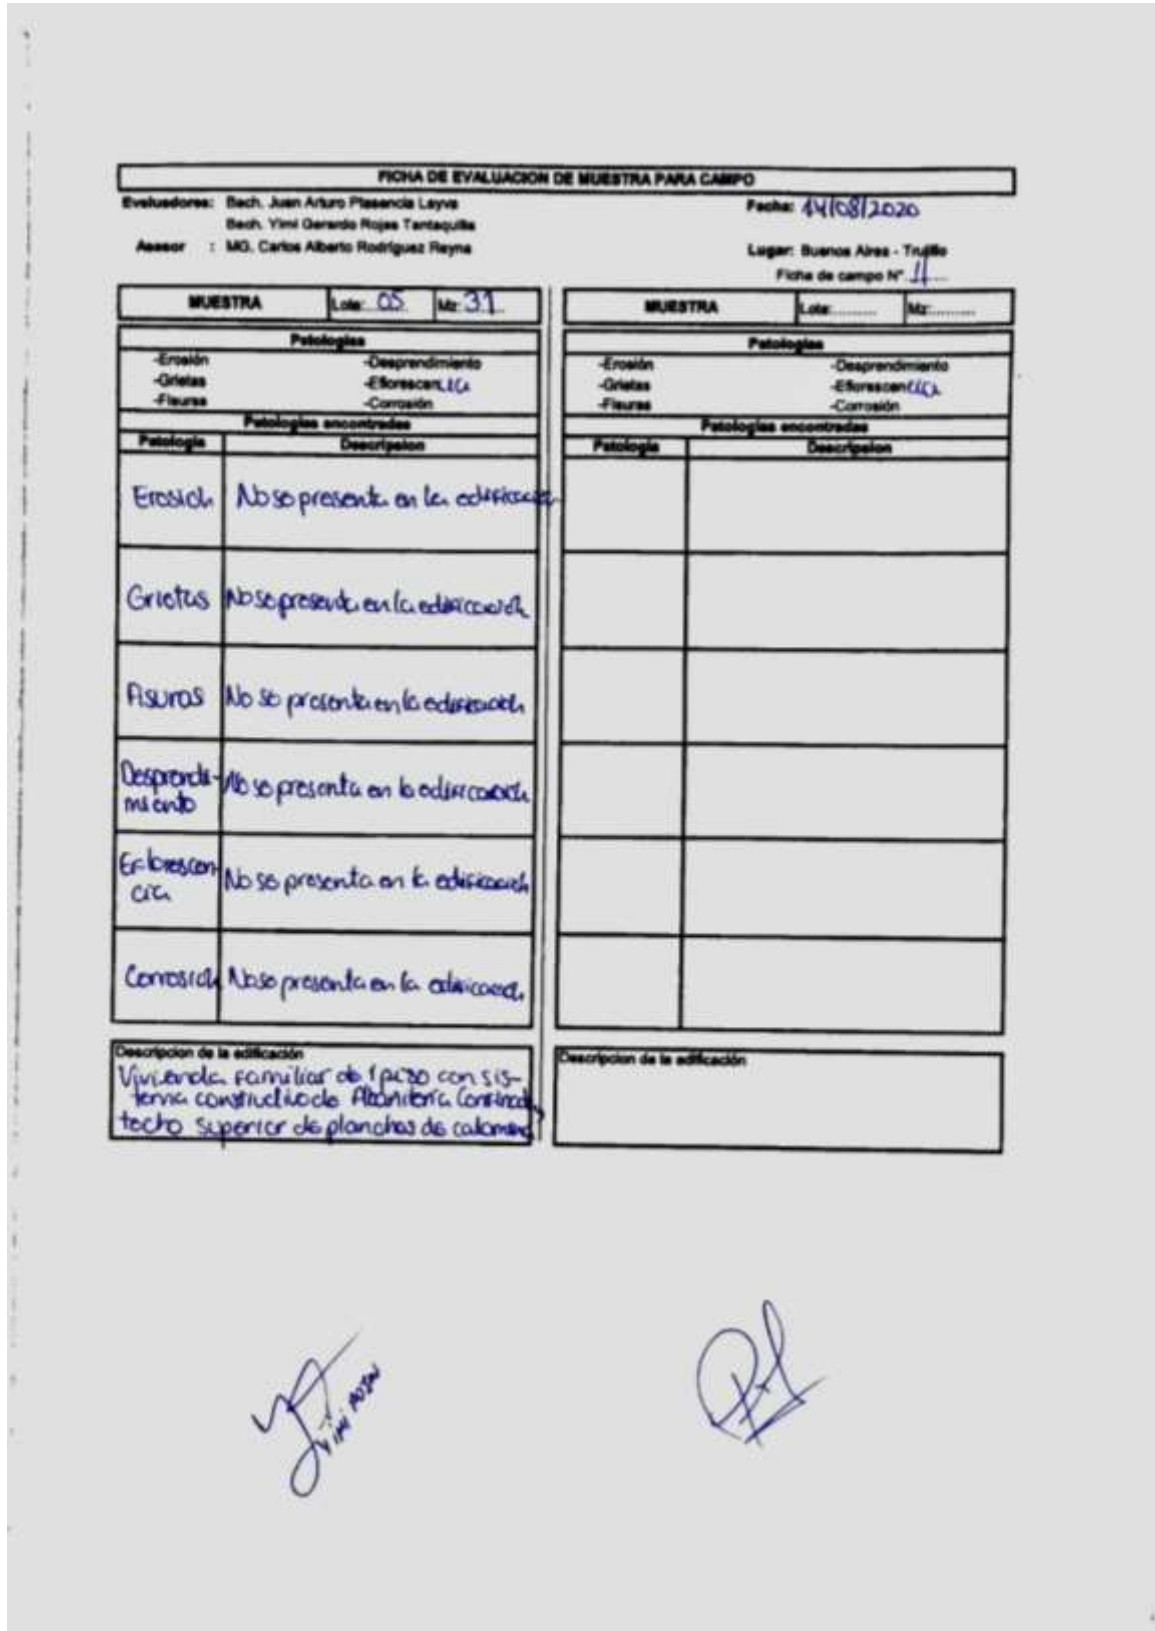 FICHA DE EVALUACION DE MUESTRA PARA CAMPO
Evaluadores: Bach. Juan Arturo Plasencia Leyva
Fecha: 14/08/2020
Bach. Yimi Gerardo Rojas Tantaquilla
Asesor : MG. Carlos Alberto Rodríguez Reyna
Lugar: Buenos Aires - Trujillo
Ficha de campo N° 11
MUESTRA Lote: 05 Mz: 31
Patologias
-Erosión -Desprendimiento
-Grietas -Eflorescencia
-Fisuras -Corrosión
Patologias encontradas
Patologia Descripcion
Erosion No se presenta en la edificacion
Grietas No se presenta en la edificacion
Fisuras No se presenta en la edificacion
Desprendi-
miento No se presenta en la edificacion
Eflorescen
cia No se presenta en la edificacion
Corrosion No se presenta en la edificacion
Descripcion de la edificación
Vivienda familiar de 1 piso con sis-
tema constructivo de Albañileria Confinada,
techo superior de planchas de calamina
MUESTRA Lote:......... Mz:.........
Patologias
-Erosión -Desprendimiento
-Grietas -Eflorescencia
-Fisuras -Corrosión
Patologias encontradas
Patologia Descripcion
Descripcion de la edificación